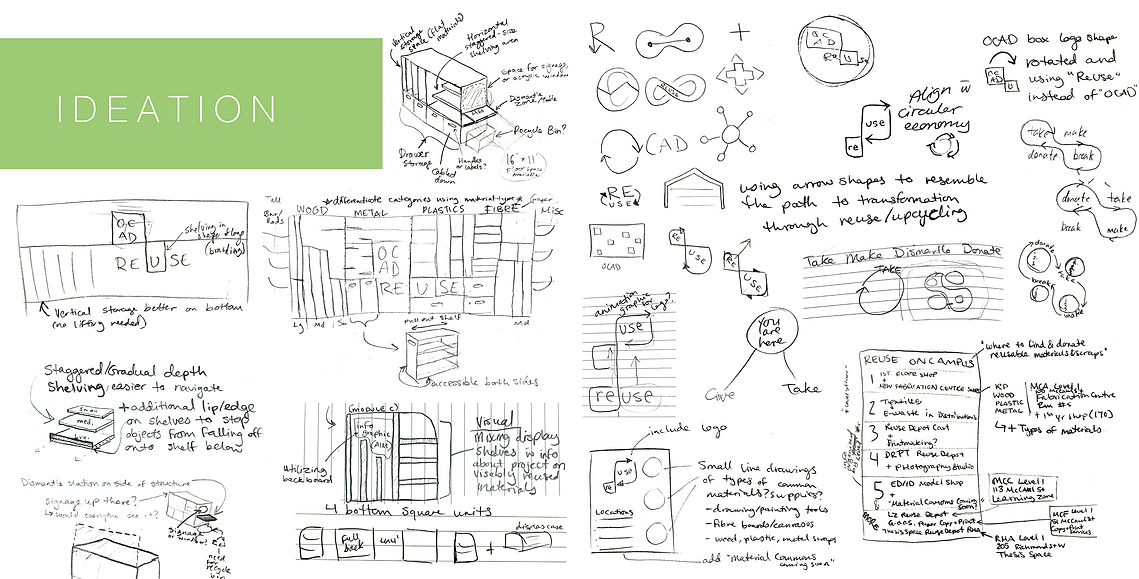 IDEATION
Vertical
storage
(flat
materials)
Horizontal
staggered-size
shelving area
space for signage,
or acrylic window
Dismantle
Zone Table
Recycle Bin?
Drawer
Storage
Handles
or labels?
16' x 11'
Floor Space
Available
OC
AD
RE USE
shelving in
shape of logo
(branding)
Vertical storage better on bottom
(no lifting needed)
Tall
Bar/
Rods
*differentiate categories using material type*
WOOD
METAL
PLASTICS
FIBRE
paper
Misc
OC
AD
RE USE
Lg
Md
Sm
Md
pull out shelf
accessible both sides
Staggered/Gradual depth
Shelving, easier to navigate
small
med.
+additional lip/edge
on shelves to stop
objects from falling off
onto shelf below
(module c)
info
+
graphic
(AIM)
utilizing
backboard
Visual
mixing display
shelves in info
about project on
visibly reused
materials
4 bottom square units
Dismantle station on side of structure
Signage up there?
↳ would everyone see it?
Signage
or window?
need
for
recycle
bin
Full
back
unit
+
R
+
CAD
RE
USE
OCAD
OC
AD
RE U SE
use
re
Align w
circular
economy
OCAD box logo shape
rotated and
using "Reuse"
instead of "OCAD"
OC
AD
U
take make
donate break
donate take
break make
using arrow shapes to resemble
the path to transformation
through reuse/upcycling
RE
USE
RE
USE
Take Make Dismantle Donate
TAKE
donate
take
break
make
animation
graphic
for
logo?
use
reuse
You
are
here
Give
Take
include logo
re
use
Locations
Small line drawings
of types of common
materials? supplies?
- drawing/painting tools
- fibre boards/canvases
- wood, plastic, metal scraps
add "Material Commons
coming soon"
"where to find & donate
reusable materials & scraps"
REUSE ON CAMPUS
1 1ST FLOOR SHOP
+
NEW FABRICATION CENTRE SHOP
2 Textiles
+
Ewaste in Distributions
3 Reuse Depot Cart
+
Printmaking?
4 DRPT Reuse Depot
+ Photography Studio
5 ED/ID Model Shop
+
Material Commons Coming
Soon!
LZ Reuse Depot
Thesis Space Reuse Depot RHA
WOOD
PLASTIC
METAL
MCA Level 1
Fabrication Centre
+ 1st yr shop (170)
↳ + Types of materials
MCC Level 1
113 McCaul St
Learning Zone
MCF Level 1
51 McCaul St
Copy + Print
RHA Level 1
205 Richmond St W
Thesis Space